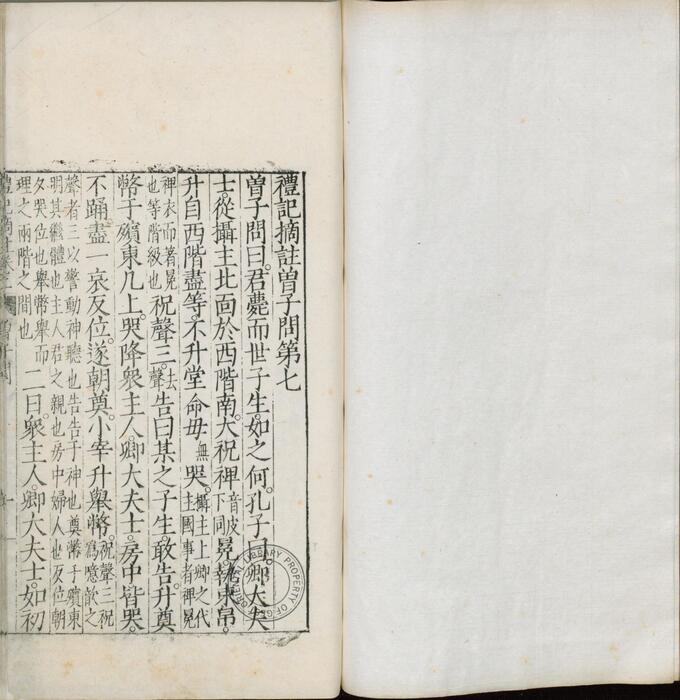 禮記摘註曾子問第七
曾子問曰。君薨而世子生。如之何。孔子曰。卿大夫
士。從攝主北面於西階南。大祝裨音皮下同冕。執束帛。
升自西階盡等。不升堂命毋無哭。攝主上卿之代主國事者裨冕
裨衣而著冕也等階級也祝聲三。聲去告曰某之子生。敢告。升奠
幣于殯東几上。哭降衆主人。卿大夫士。房中皆哭。
不踊盡一哀反位。遂朝奠。小宰升舉幣。祝聲三祝為噫歆之
聲者三以警動神聽也告告于神也奠幣于殯東
明其繼體也主人君之親也房中婦人也反位朝
夕哭位也舉幣舉而理之兩階之間也二日衆主人。卿大夫士。如初
禮記摘註卷之 曾子問
PROPERTY OF
LIBRARY